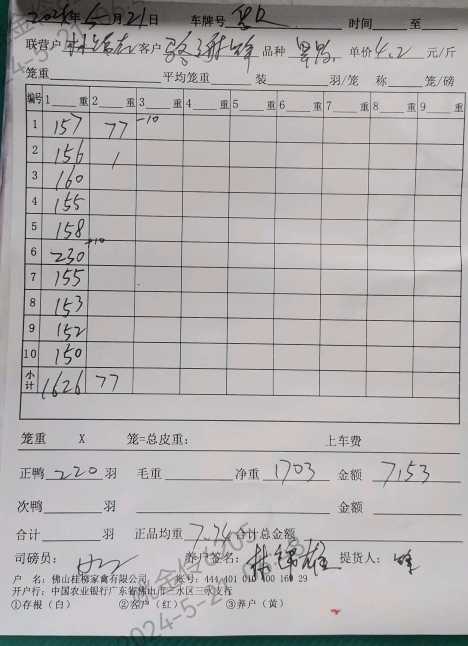 2024年5月21日 车牌号 时间 至
联营户 客户 品种 单价4.2元/斤
笼重 平均笼重 装 羽/笼 称 笼/磅
编号 1 重 2 重 3 重 4 重 5 重 6 重 7 重 8 重 9 重
1 157 77 -10
2 156 1
3 160
4 155
5 158
6 230 +10
7 155
8 153
9 152
10 150
小计 1626 77
笼重 X 笼=总皮重: 上车费
正鸭 220 羽 毛重 净重 1703 金额 7153
次鸭 羽 金额
合计 羽 正品均重 7.74 合计总金额
司磅员: 养户签名: 提货人:
户 名:佛山桂柳家禽有限公司 账号:444 401 010 400 160 29
开户行:中国农业银行广东省佛山市三水区三水支行
①存根(白) ②客户(红) ③养户(黄)